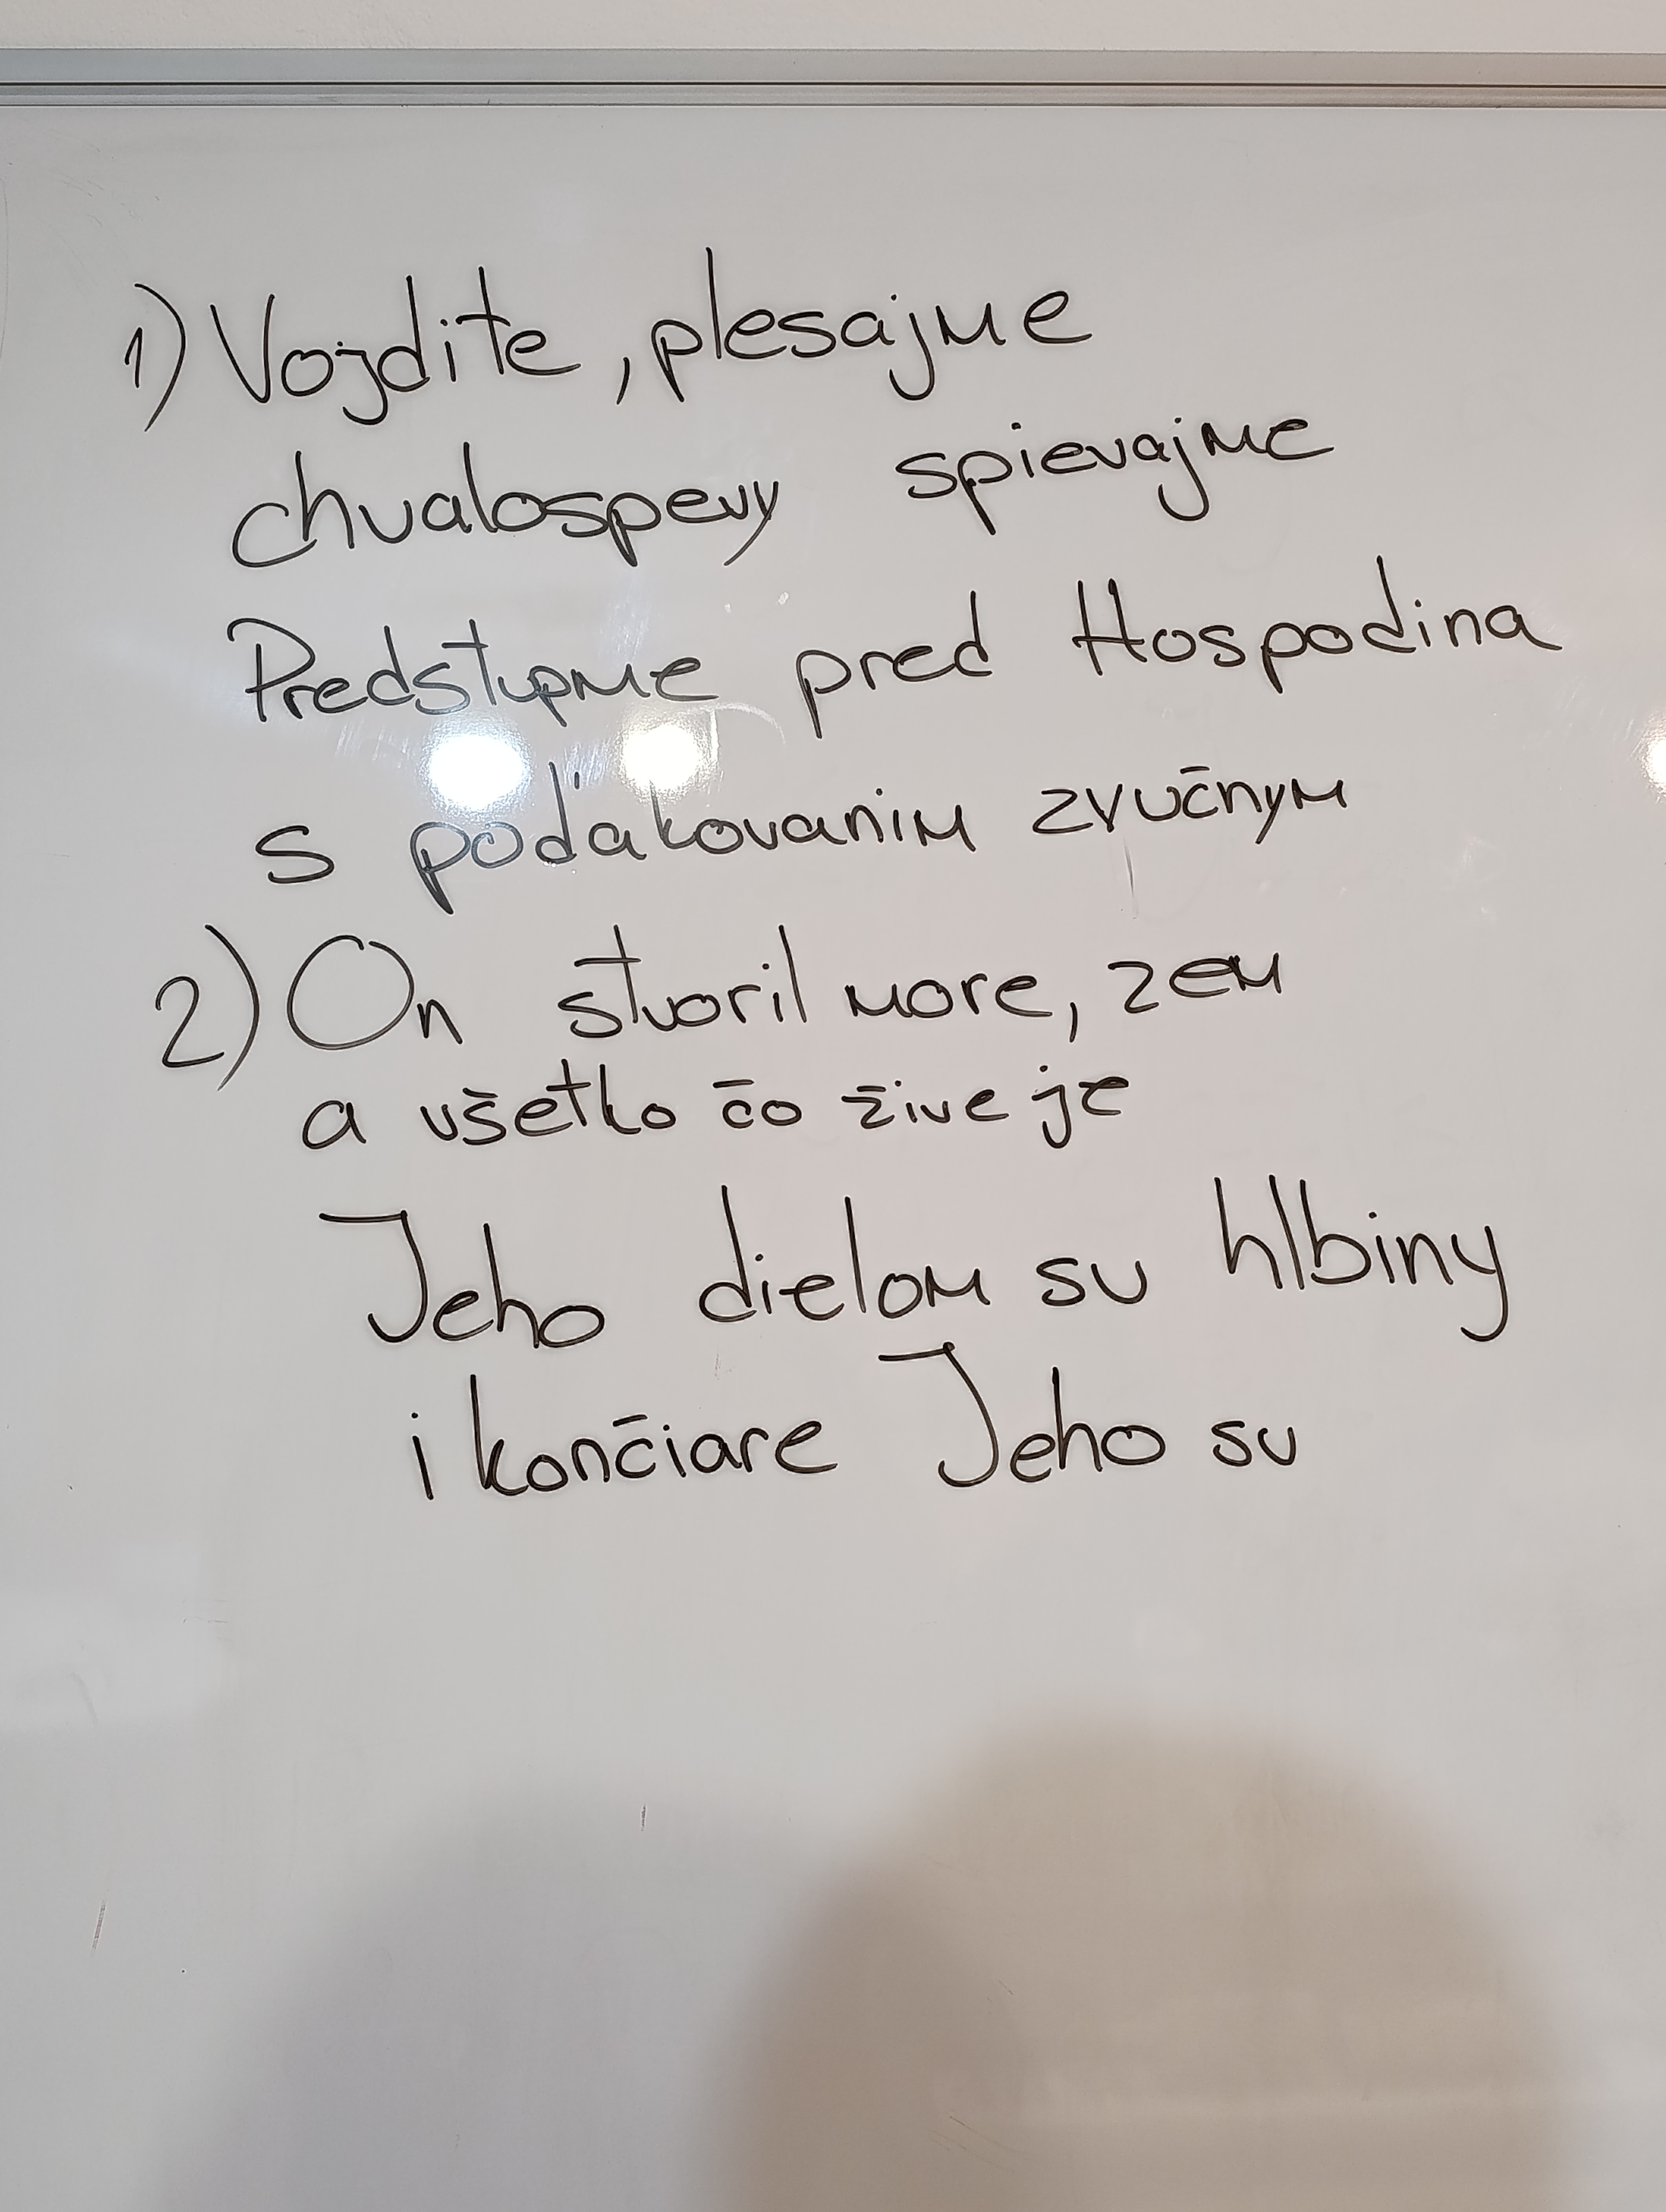 1) Vojdite, plesajme
chvalospevy spievajme
Predstupme pred Hospodina
s poďakovanim zvučnym
2) On stvoril more, zem
a všetko čo žive je
Jeho dielom su hlbiny
i končiare Jeho su